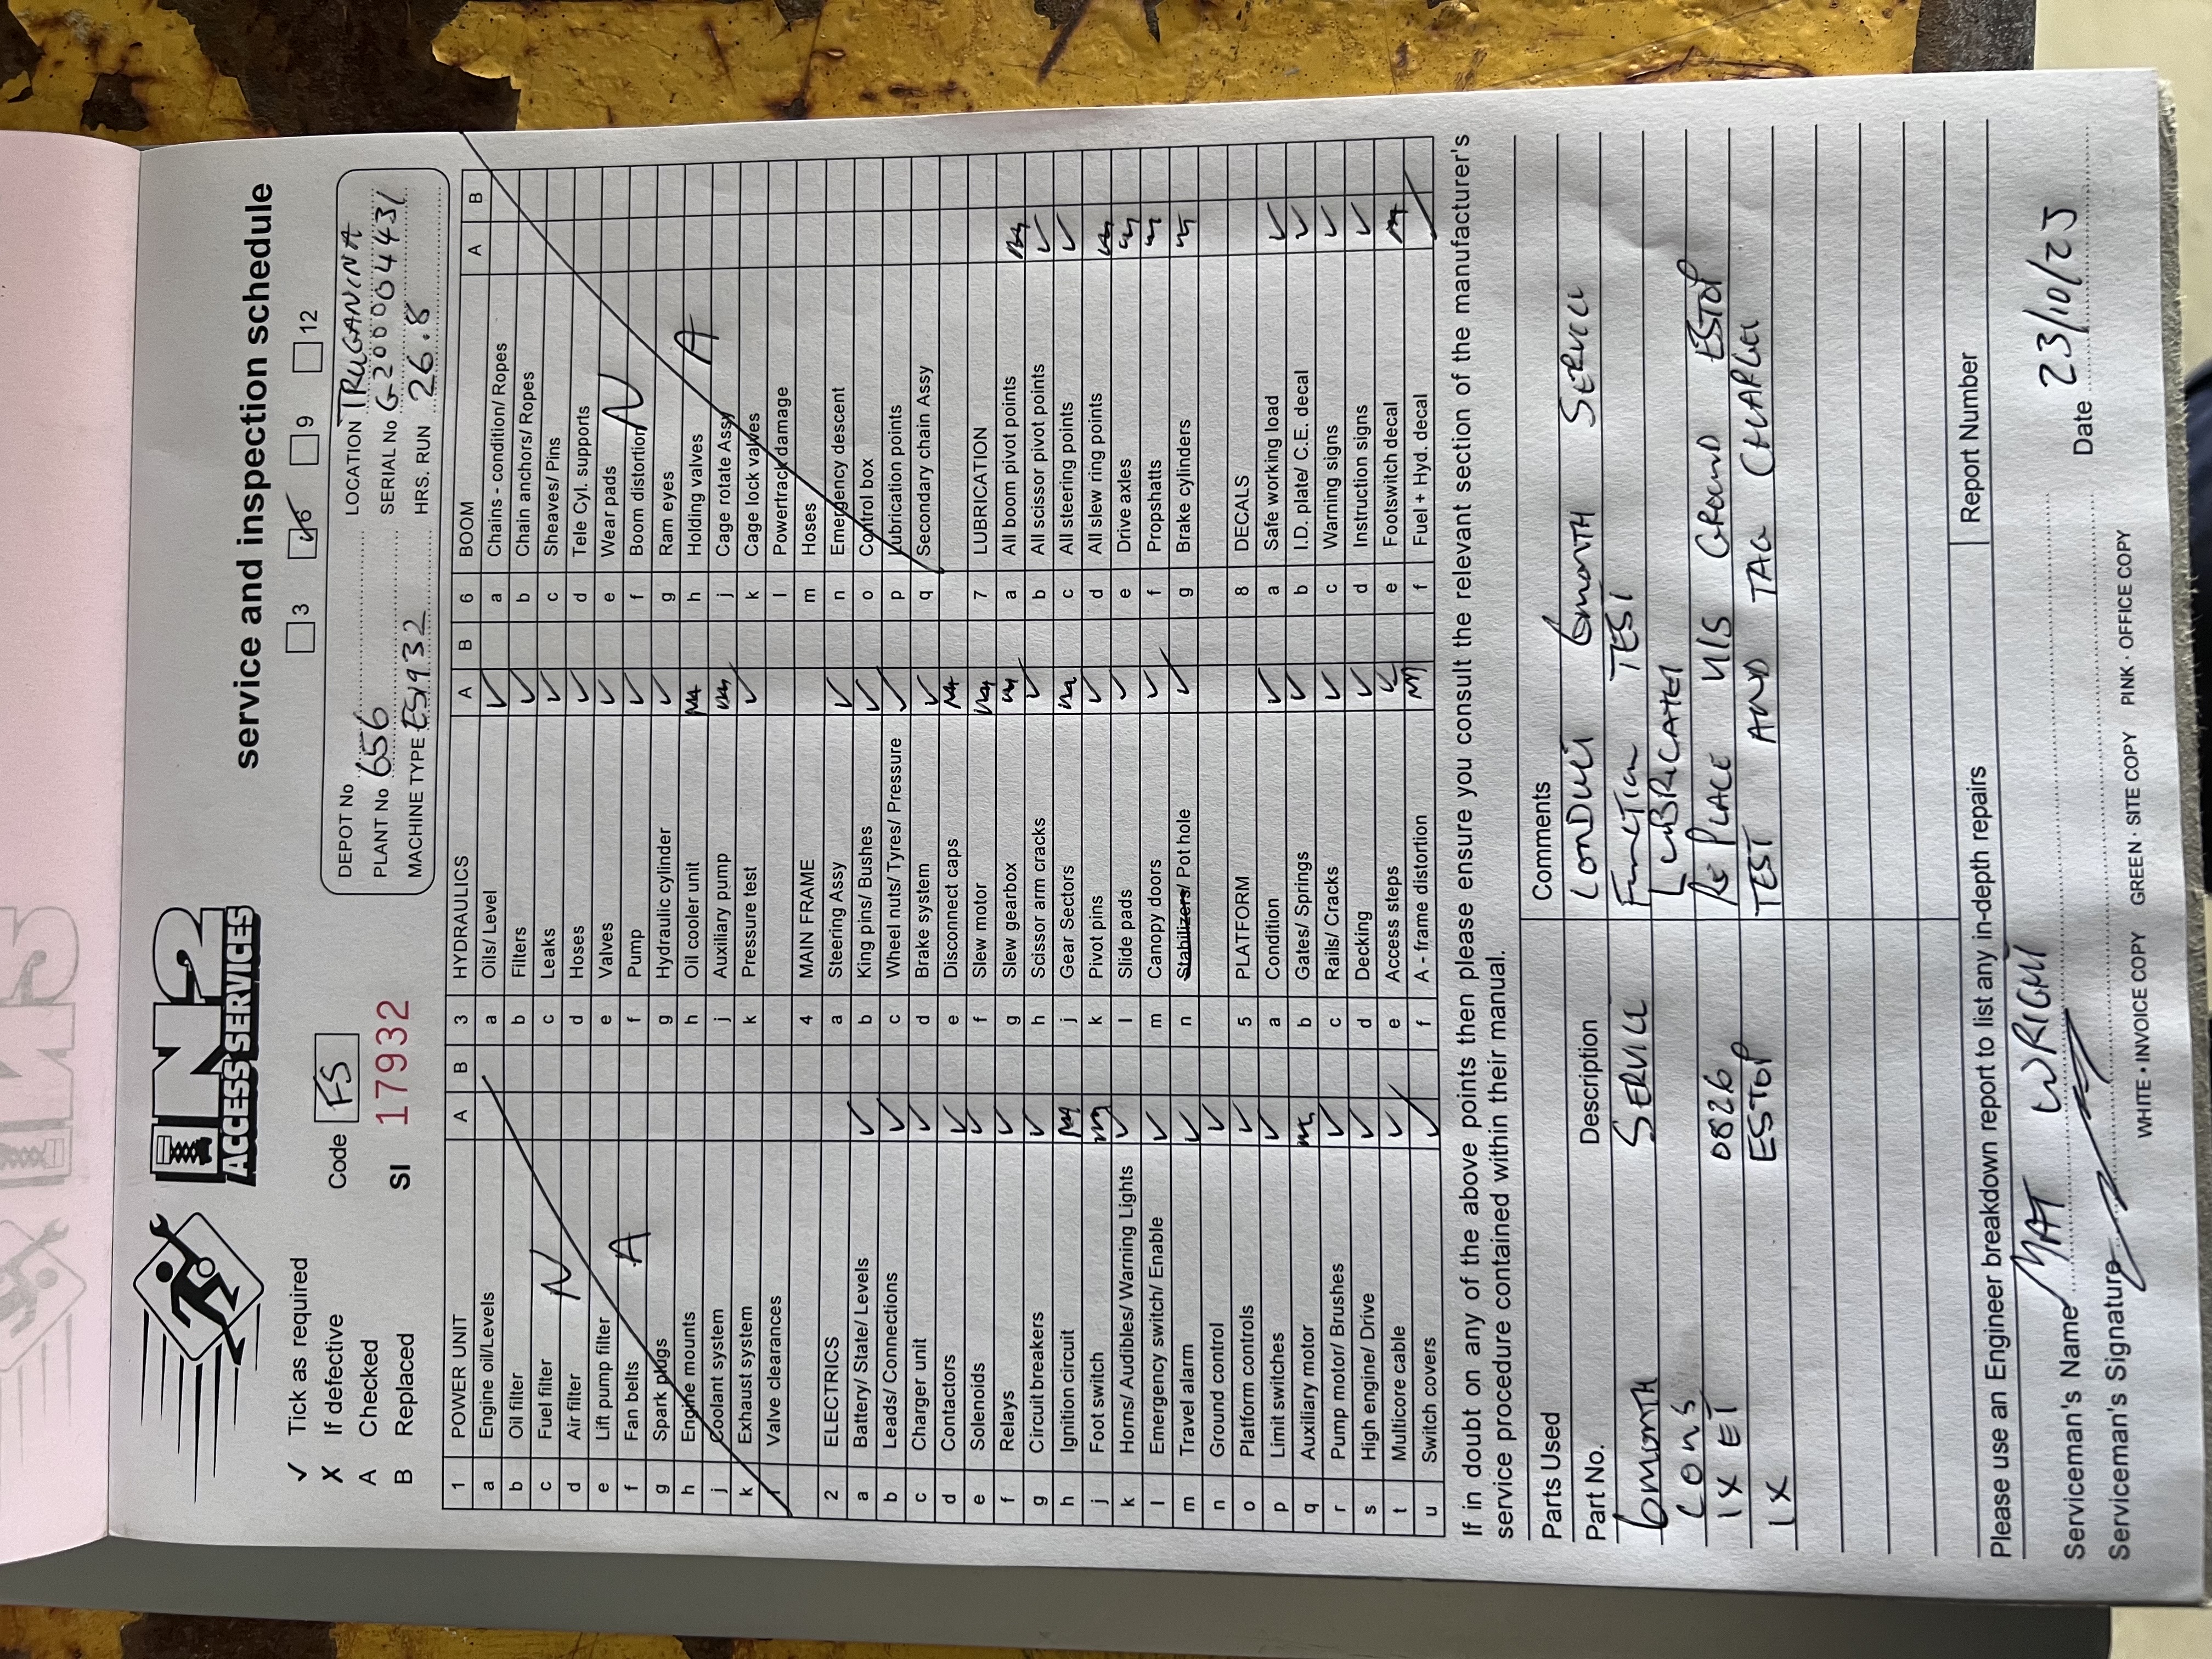 IN2
ACCESS SERVICES
service and inspection schedule
✓ Tick as required
X If defective
A Checked
B Replaced
Code FS
SI 17932
☐ 3 ☑ 6 ☐ 9 ☐ 12
DEPOT No
LOCATION TRUGANINA
PLANT No 656
SERIAL No G20004431
MACHINE TYPE ES1932
HRS. RUN 26.8
1 POWER UNIT A B
a Engine oil/Levels
b Oil filter
c Fuel filter
d Air filter
e Lift pump filter
f Fan belts
g Spark plugs
h Engine mounts
j Coolant system
k Exhaust system
l Valve clearances
N A
2 ELECTRICS
a Battery/ State/ Levels ✓
b Leads/ Connections ✓
c Charger unit ✓
d Contactors ✓
e Solenoids ✓
f Relays ✓
g Circuit breakers ✓
h Ignition circuit NA
j Foot switch NA
k Horns/ Audibles/ Warning Lights ✓
l Emergency switch/ Enable ✓
m Travel alarm ✓
n Ground control ✓
o Platform controls ✓
p Limit switches ✓
q Auxiliary motor NA
r Pump motor/ Brushes ✓
s High engine/ Drive ✓
t Multicore cable ✓
u Switch covers ✓
3 HYDRAULICS A B
a Oils/ Level ✓
b Filters ✓
c Leaks ✓
d Hoses ✓
e Valves ✓
f Pump ✓
g Hydraulic cylinder ✓
h Oil cooler unit NA
j Auxiliary pump NA
k Pressure test ✓
4 MAIN FRAME
a Steering Assy ✓
b King pins/ Bushes ✓
c Wheel nuts/ Tyres/ Pressure ✓
d Brake system ✓
e Disconnect caps NA
f Slew motor NA
g Slew gearbox NA
h Scissor arm cracks ✓
j Gear Sectors NA
k Pivot pins ✓
l Slide pads ✓
m Canopy doors ✓
n Stabilizers/ Pot hole ✓
5 PLATFORM
a Condition ✓
b Gates/ Springs ✓
c Rails/ Cracks ✓
d Decking ✓
e Access steps ✓
f A - frame distortion NA
6 BOOM A B
a Chains - condition/ Ropes
b Chain anchors/ Ropes
c Sheaves/ Pins
d Tele Cyl. supports
e Wear pads
f Boom distortion
g Ram eyes
h Holding valves
j Cage rotate Assy
k Cage lock valves
l Powertrack damage
m Hoses
n Emergency descent
o Control box
p Lubrication points
q Secondary chain Assy
N A
7 LUBRICATION
a All boom pivot points NA
b All scissor pivot points ✓
c All steering points ✓
d All slew ring points NA
e Drive axles NA
f Propshatts NA
g Brake cylinders NA
8 DECALS
a Safe working load ✓
b I.D. plate/ C.E. decal ✓
c Warning signs ✓
d Instruction signs ✓
e Footswitch decal NA
f Fuel + Hyd. decal ✓
If in doubt on any of the above points then please ensure you consult the relevant section of the manufacturer's
service procedure contained within their manual.
Parts Used
Part No. Description
6MONTH SERVICE
CONS
1X ET 0826
1X ESTOP
Comments
CONDUCT 6MONTH SERVICE
FUNCTION TEST
LUBRICATED
REPLACE U/S GROUND ESTOP
TEST AND TAG CHARGER
Please use an Engineer breakdown report to list any in-depth repairs
Report Number
Serviceman's Name MAT WRIGHT
Serviceman's Signature
Date 23/10/23
WHITE • INVOICE COPY GREEN • SITE COPY PINK • OFFICE COPY